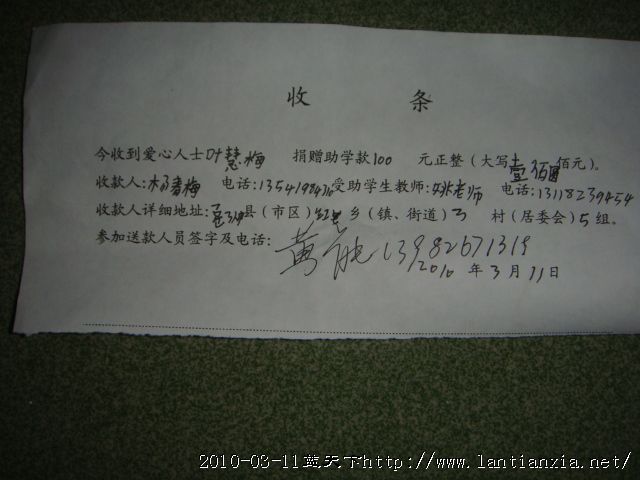 收 条
今收到爱心人士叶慧梅 捐赠助学款100 元正整（大写壹佰圆佰元）。
收款人:杨清梅 电话:135419847 受助学生教师:姚老师 电话:13118239454
收款人详细地址: 县（市区） 乡（镇、街道）3 村（居委会）5组。
参加送款人员签字及电话: 黄 13982671319
2010 年3月11日
2010-03-11蓝天下http://www.lantianxia.net/